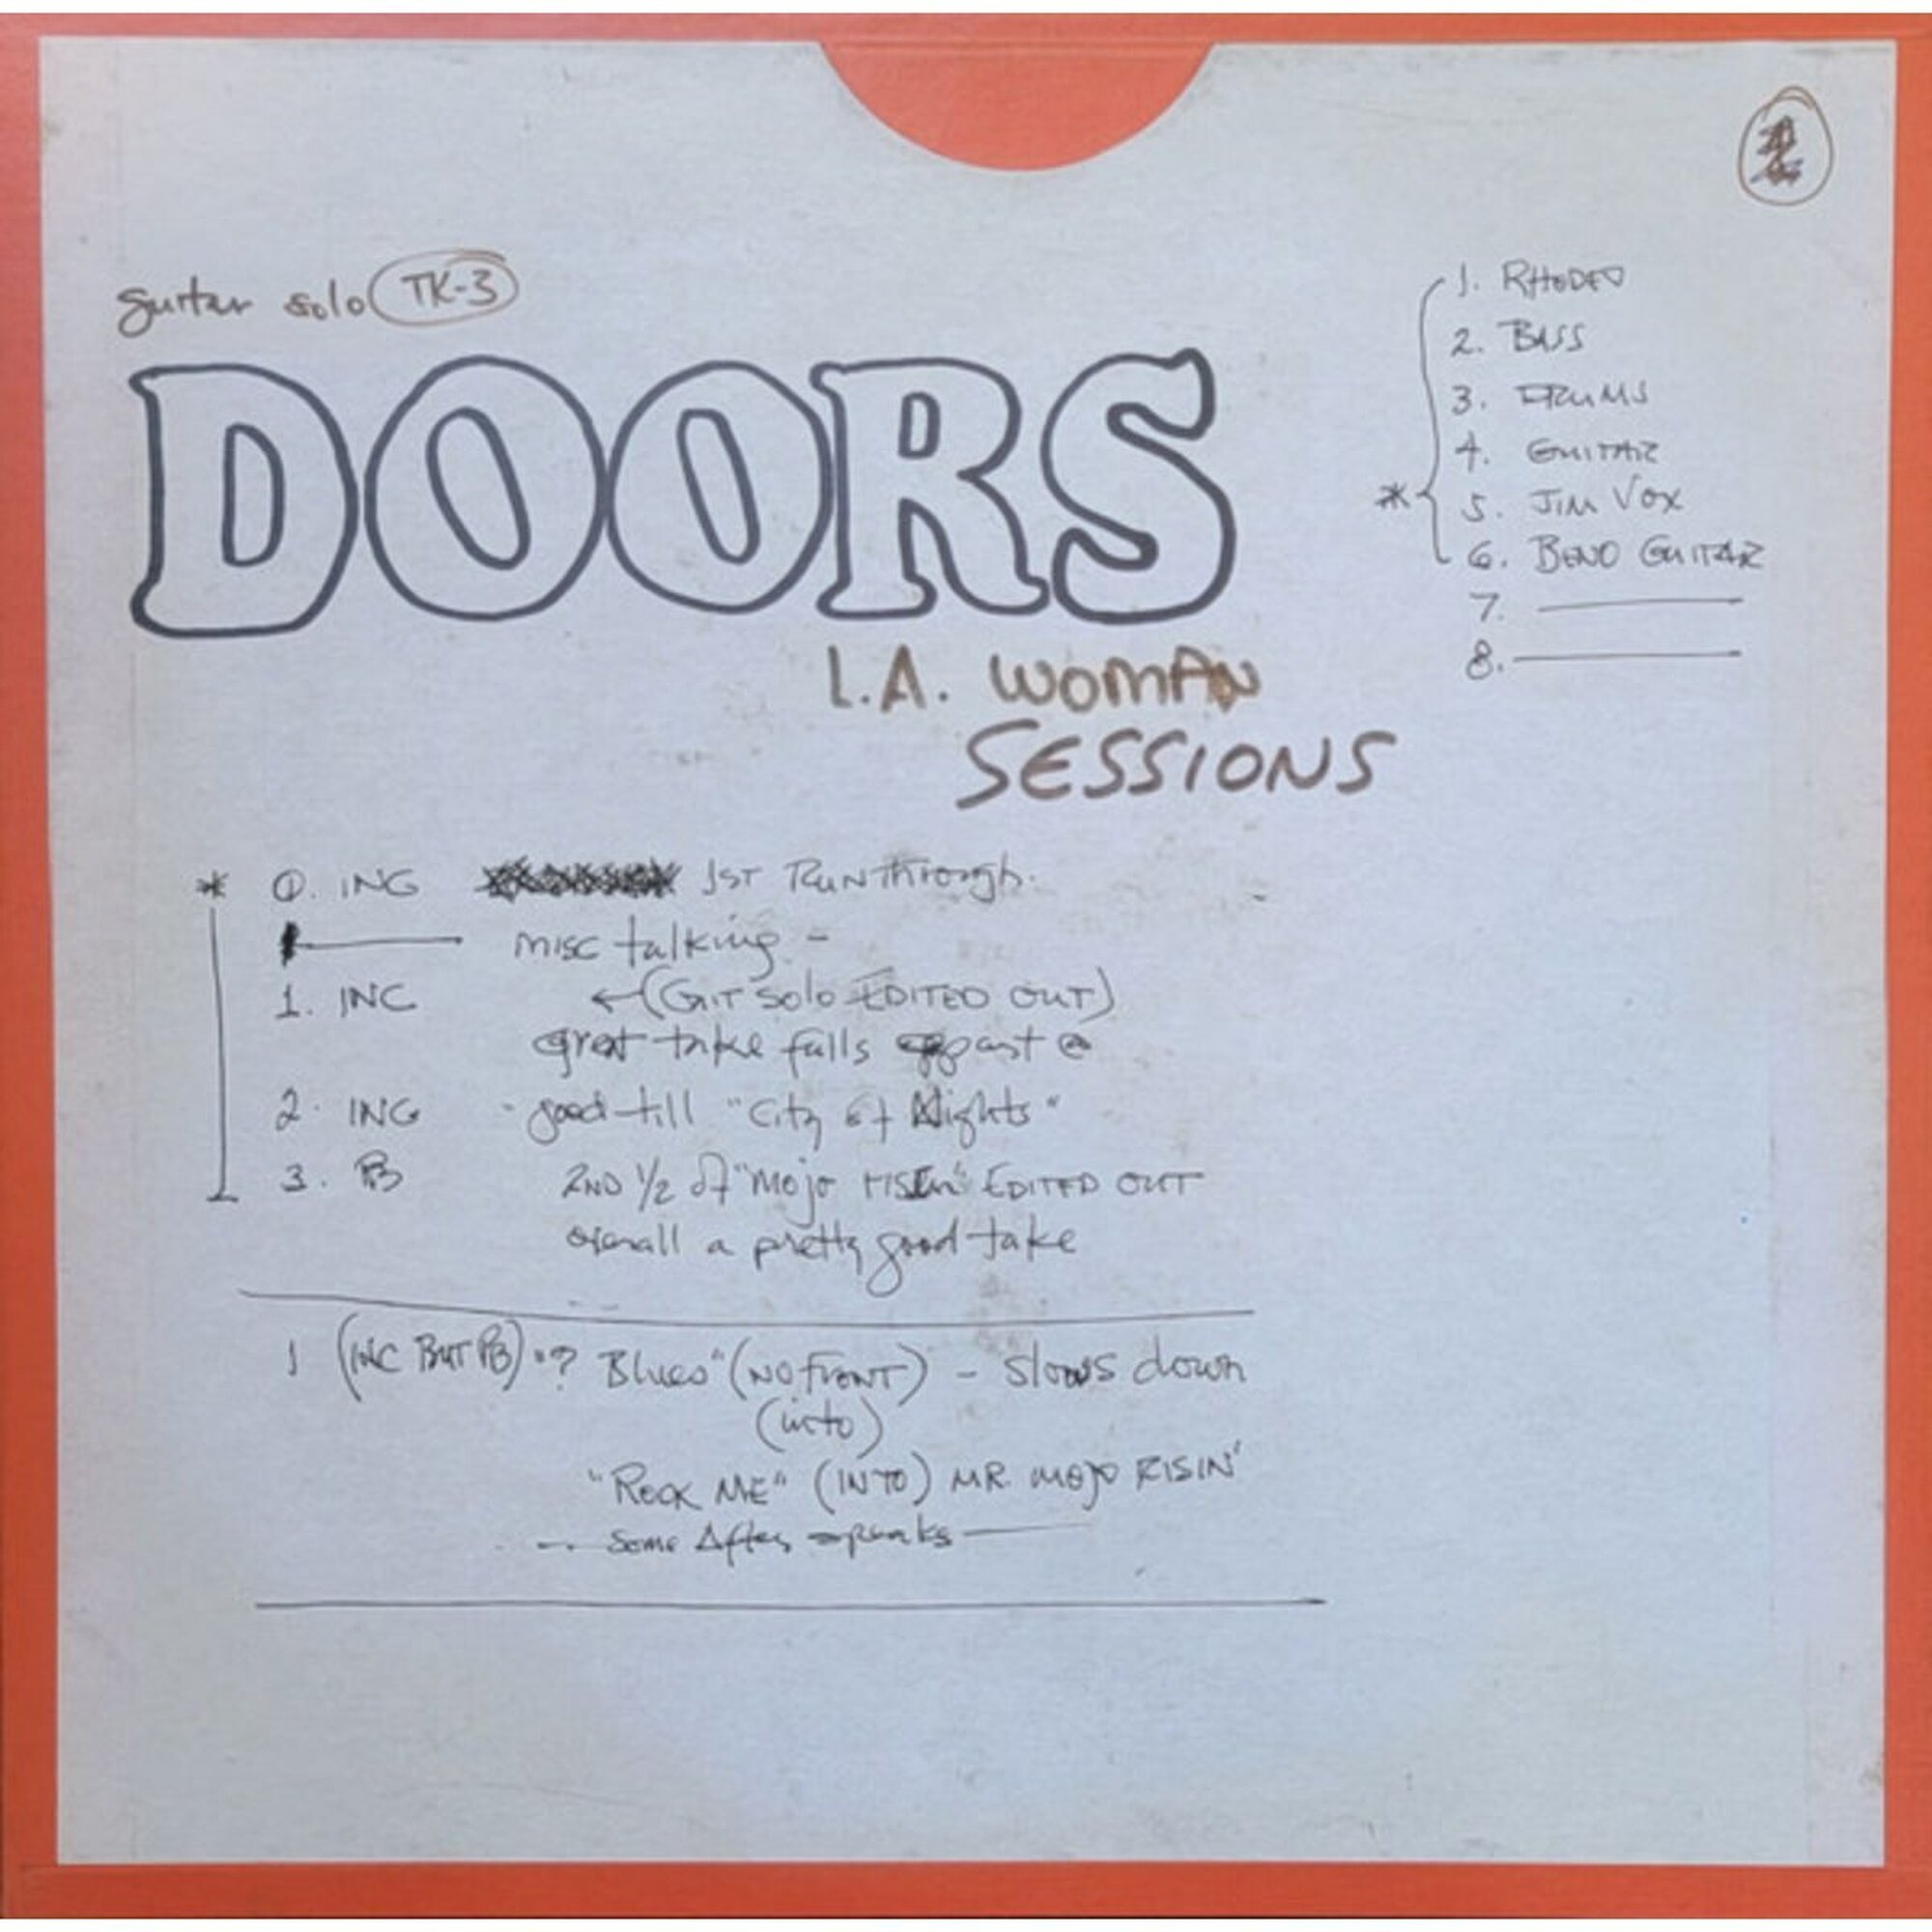 guitar solo TK-3
DOORS
L.A. WOMAN
SESSIONS
* 1. RHODES
2. BASS
3. DRUMS
4. GUITAR
5. JIM VOX
6. BENO GUITAR
7.
8.
* 0. INC 1ST RUNThrough.
misc talking -
1. INC ←(GIT Solo EDITED OUT)
great take falls appart @
2. INC - good till "City of Nights"
3. PB 2ND 1/2 of "Mojo risin" EDITED OUT
overall a pretty good take
1 (INC BUT PB) "? Blues" (NO FRONT) - Slows down
(into)
"ROCK ME" (INTO) MR. MOJO RISIN'
-- Some After